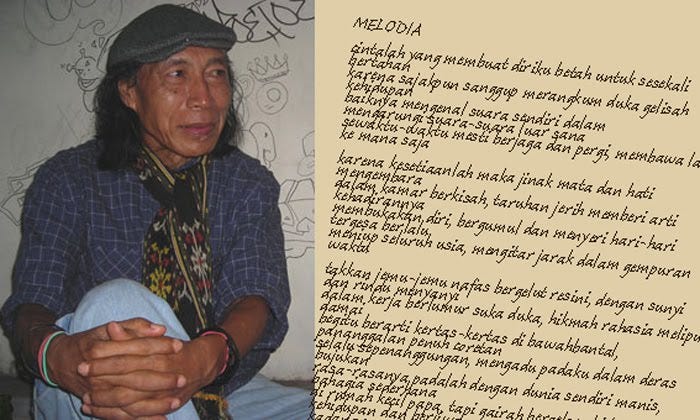 MELODIA
cintalah yang membuat diriku betah untuk sesekali
bertahan
karena sajakpun sanggup merangkum duka gelisah
kehidupan
baiknya mengenal suara sendiri dalam
mengarungi suara-suara luar sana
sewaktu-waktu mesti berjaga dan pergi, membawa
ke mana saja
karena kesetiaanlah maka jinak mata dan hati
mengembara
dalam kamar berkisah, taruhan jerih memberi arti
kehadirannya
membukakan diri, bergumul dan menyeri hari-hari
tergesa berlalu
meniup seluruh usia, mengitar jarak dalam gempuran
waktu
takkan jemu-jemu nafas bergelut resini, dengan sunyi
dan rindu menyanyi
dalam kerja berlumur suka duka, hikmah rahasia
damai
begitu berarti kertas-kertas di bawahbantal,
penanggalan penuh coretan
selalu sepenanggungan, mengadu padaku dalam deras
bujukan
rasa-rasanya padalah dengan dunia sendiri manis,
bahagia sederhana
di rumah kecil papa, tapi gairah
kehidupan dan